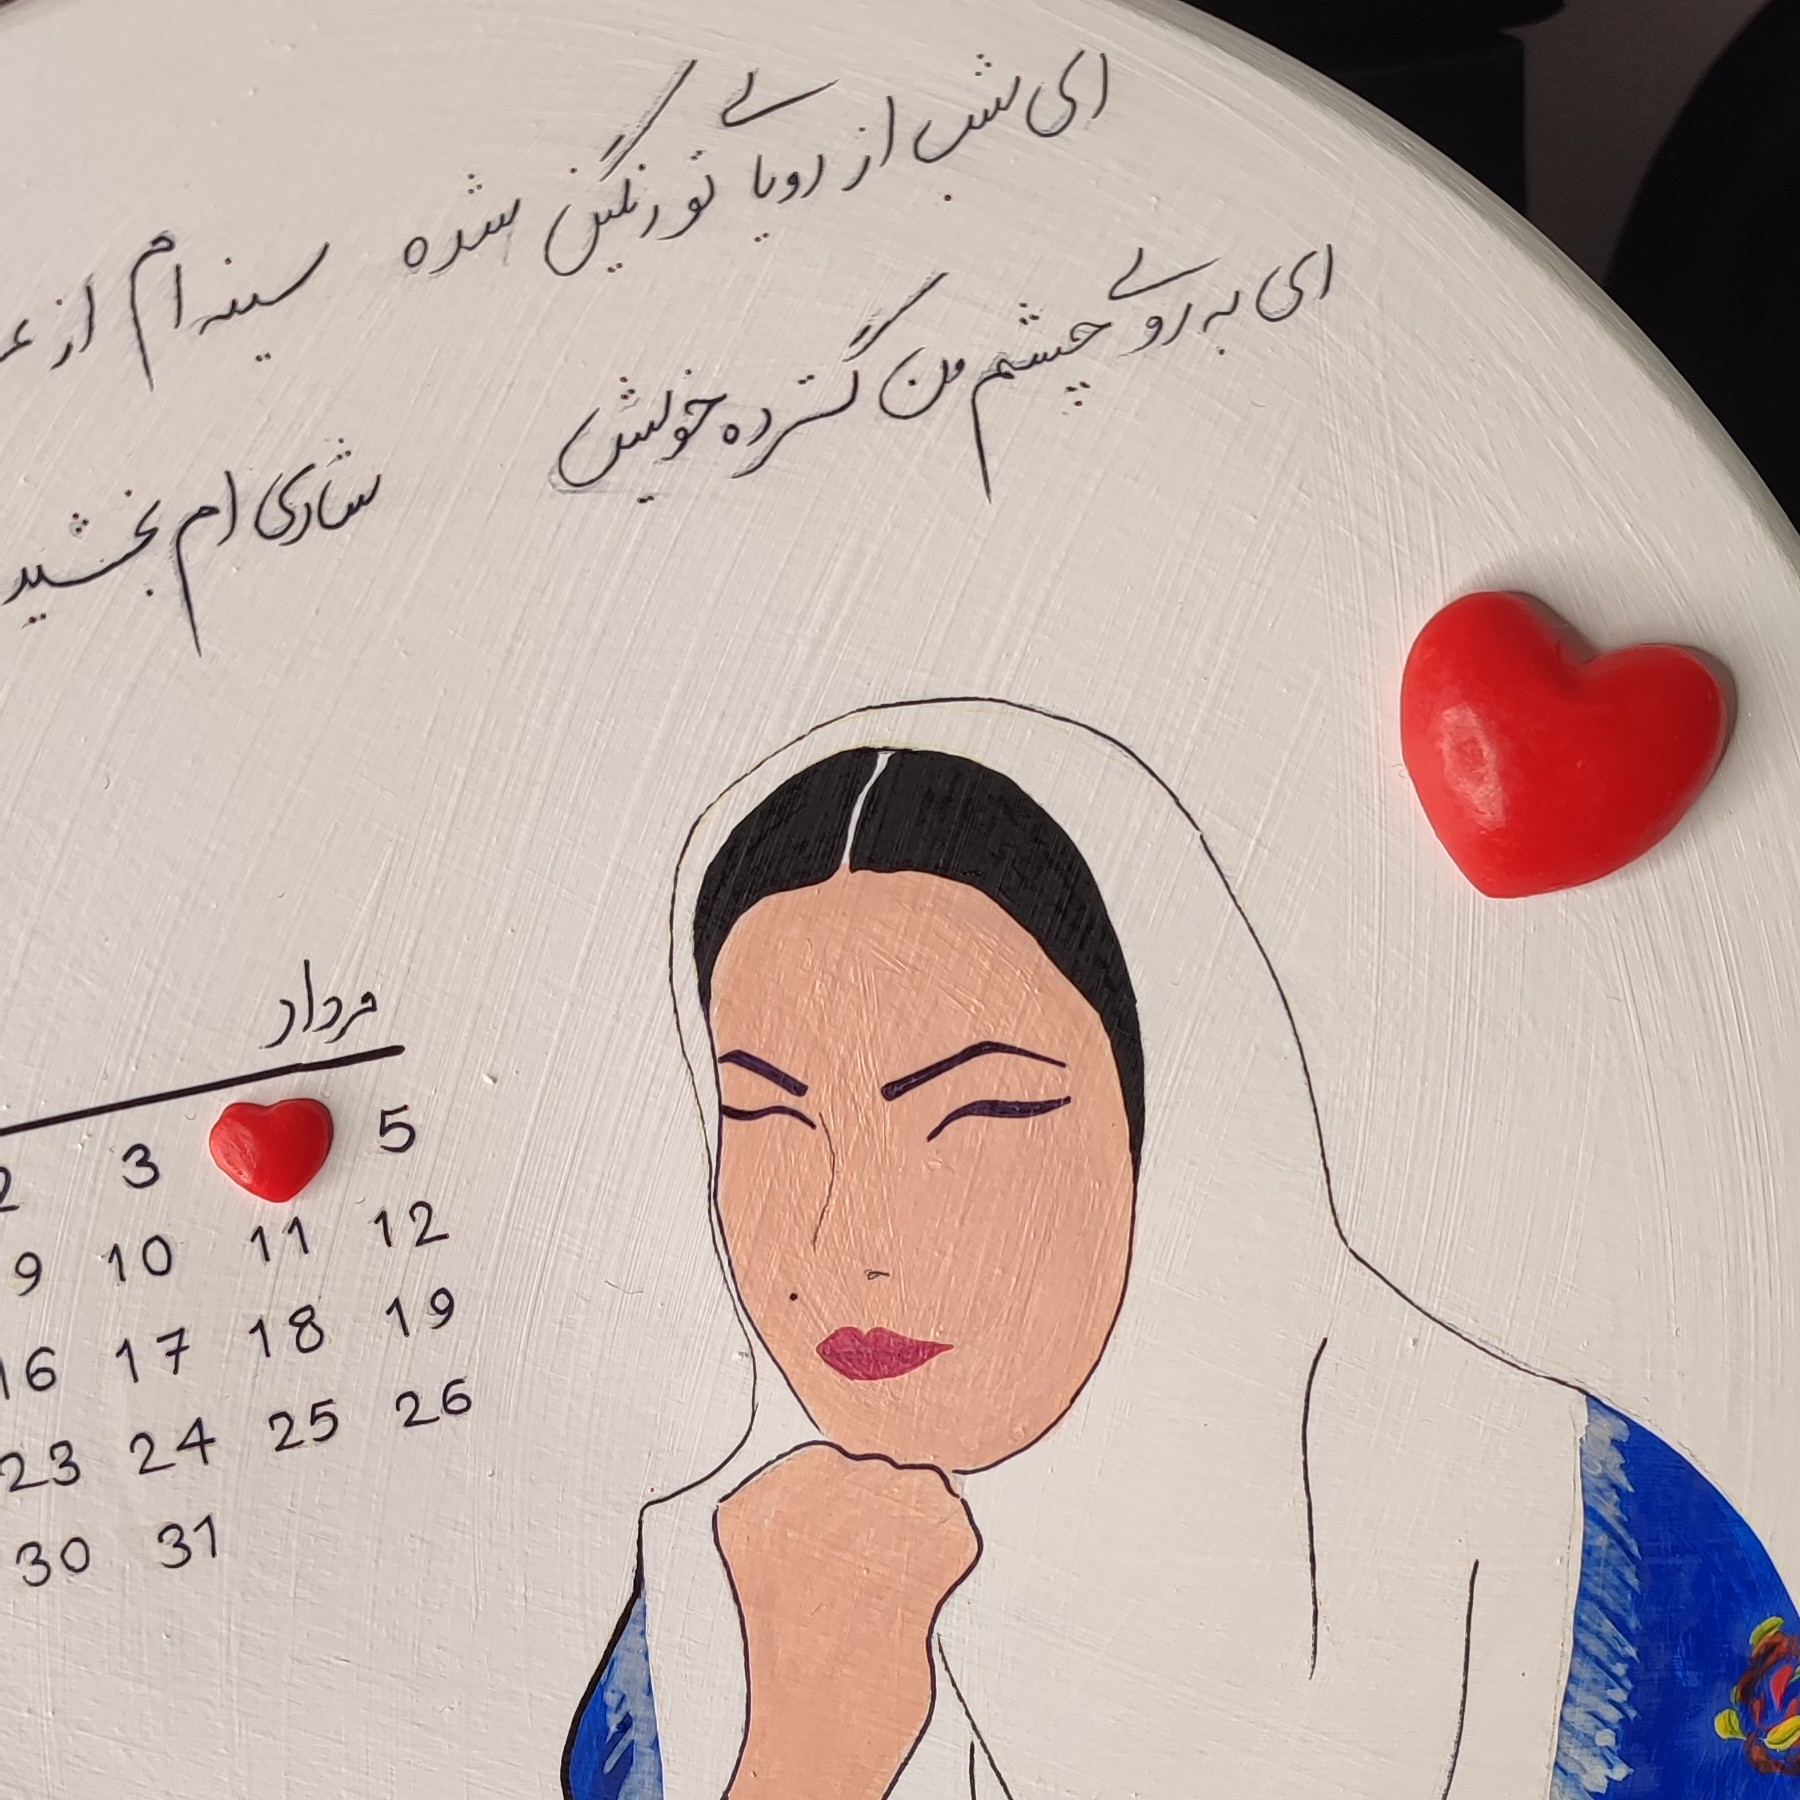 ای شب از رویای تو رنگین شده سینه ام از
ای به روی چشم من گسترده خویش شادی ام بخشید
مرداد
2 3 5
9 10 11 12
16 17 18 19
23 24 25 26
30 31